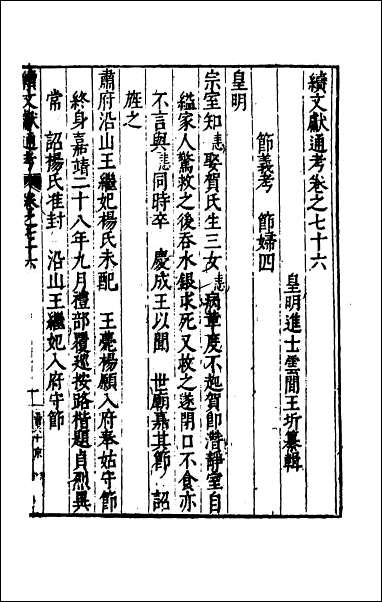 續文獻通考卷之七十六
皇明進士雲間王圻纂輯
節義考 節婦四
皇明
宗室知𤆼娶賀氏生三女病革度不起賀即潛靜室自
縊家人驚救之後吞水銀求死又救之遂閉口不食亦
不言與同時卒 慶成王以聞 世廟嘉其節 詔
旌之
肅府沿山王繼妃楊氏未配 王薨楊願入府奉姑守節
終身嘉靖二十八年九月禮部覆巡按路楷題貞烈異
常 詔楊氏准封 沿山王繼妃入府守節
續文獻通考 卷之七十六